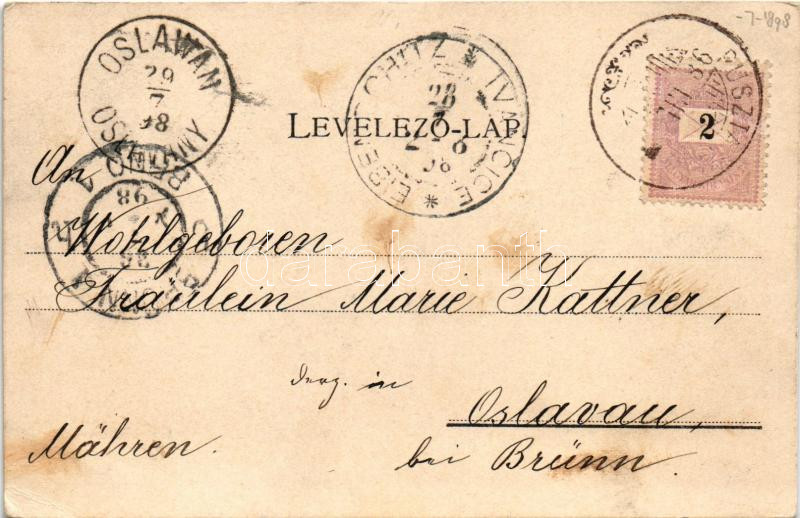 -7-1898
OSLAWAN
29
7
98
EIBENSCHITZ * IVANČICE *
28
7
98
PUSZTA
2
LEVELEZŐ-LAP.
An
BRÜNN
BRNO
98
Wohlgeboren
Fräulein Marie Kattner,
derz. in
Oslavau,
Mähren.
bei Brünn.
darabanth